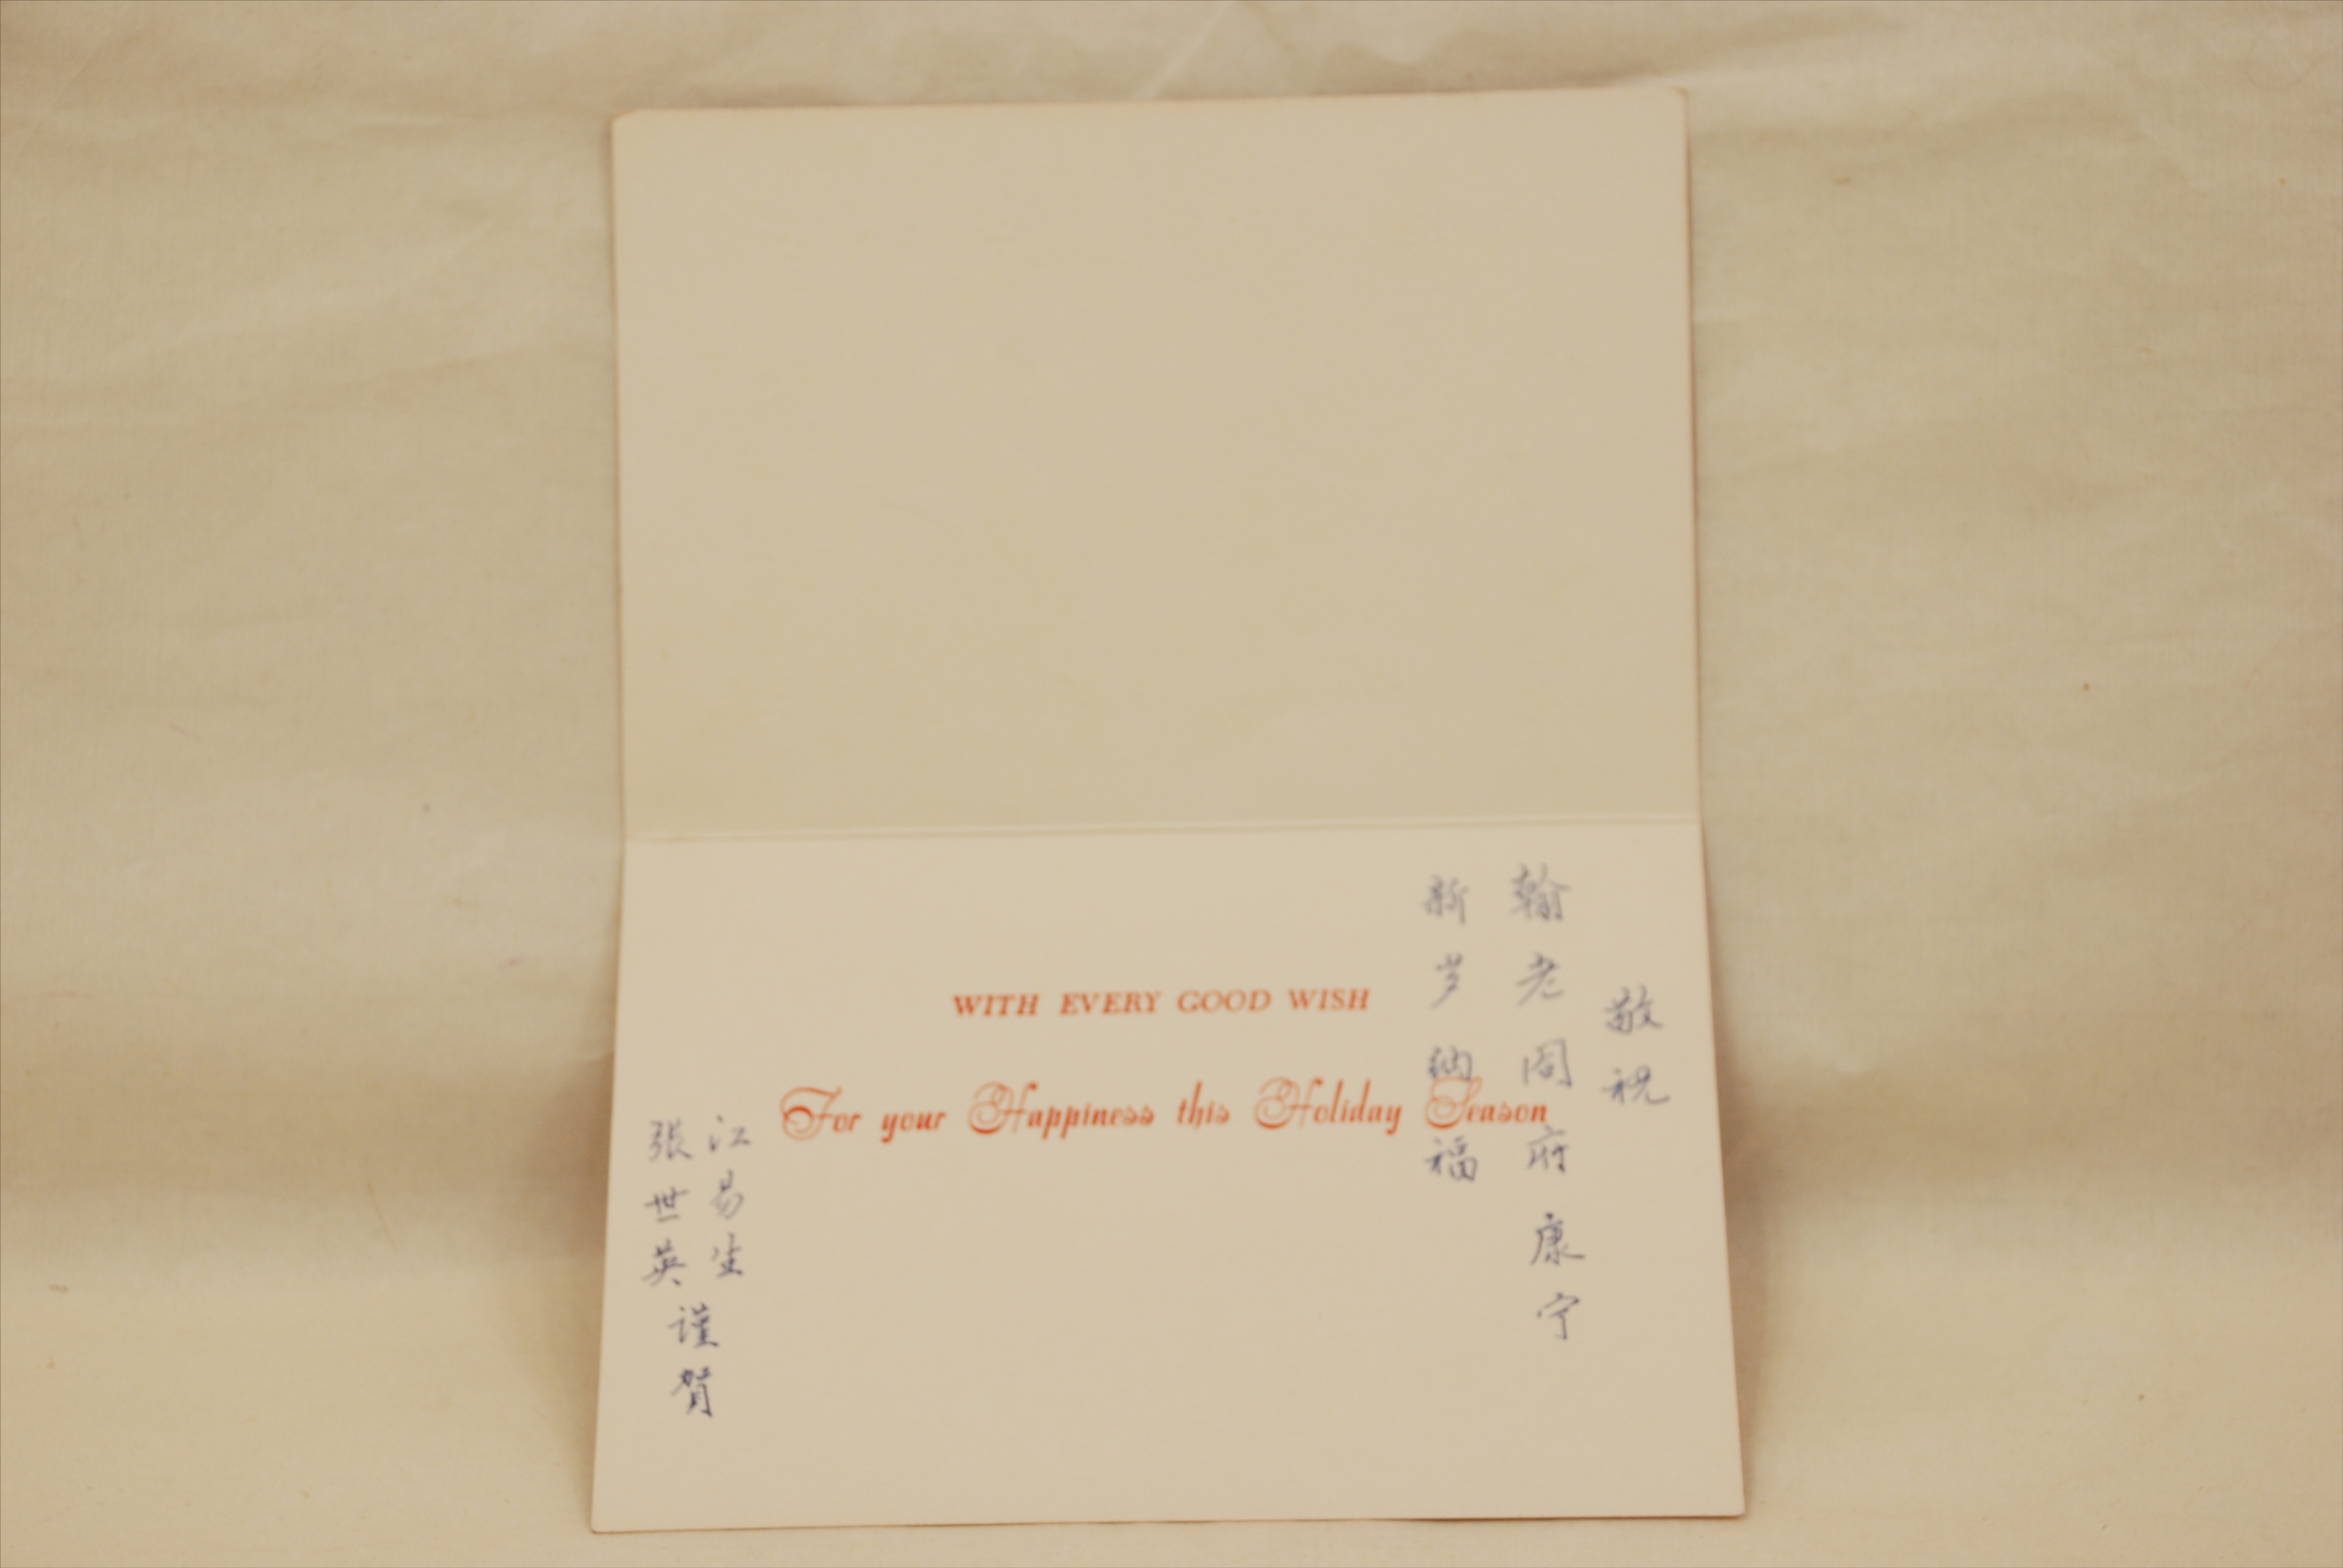 敬祝
翰老阖府康宁
新岁纳福
WITH EVERY GOOD WISH
For your Happiness this Holiday Season
江易生
張世英
谨賀